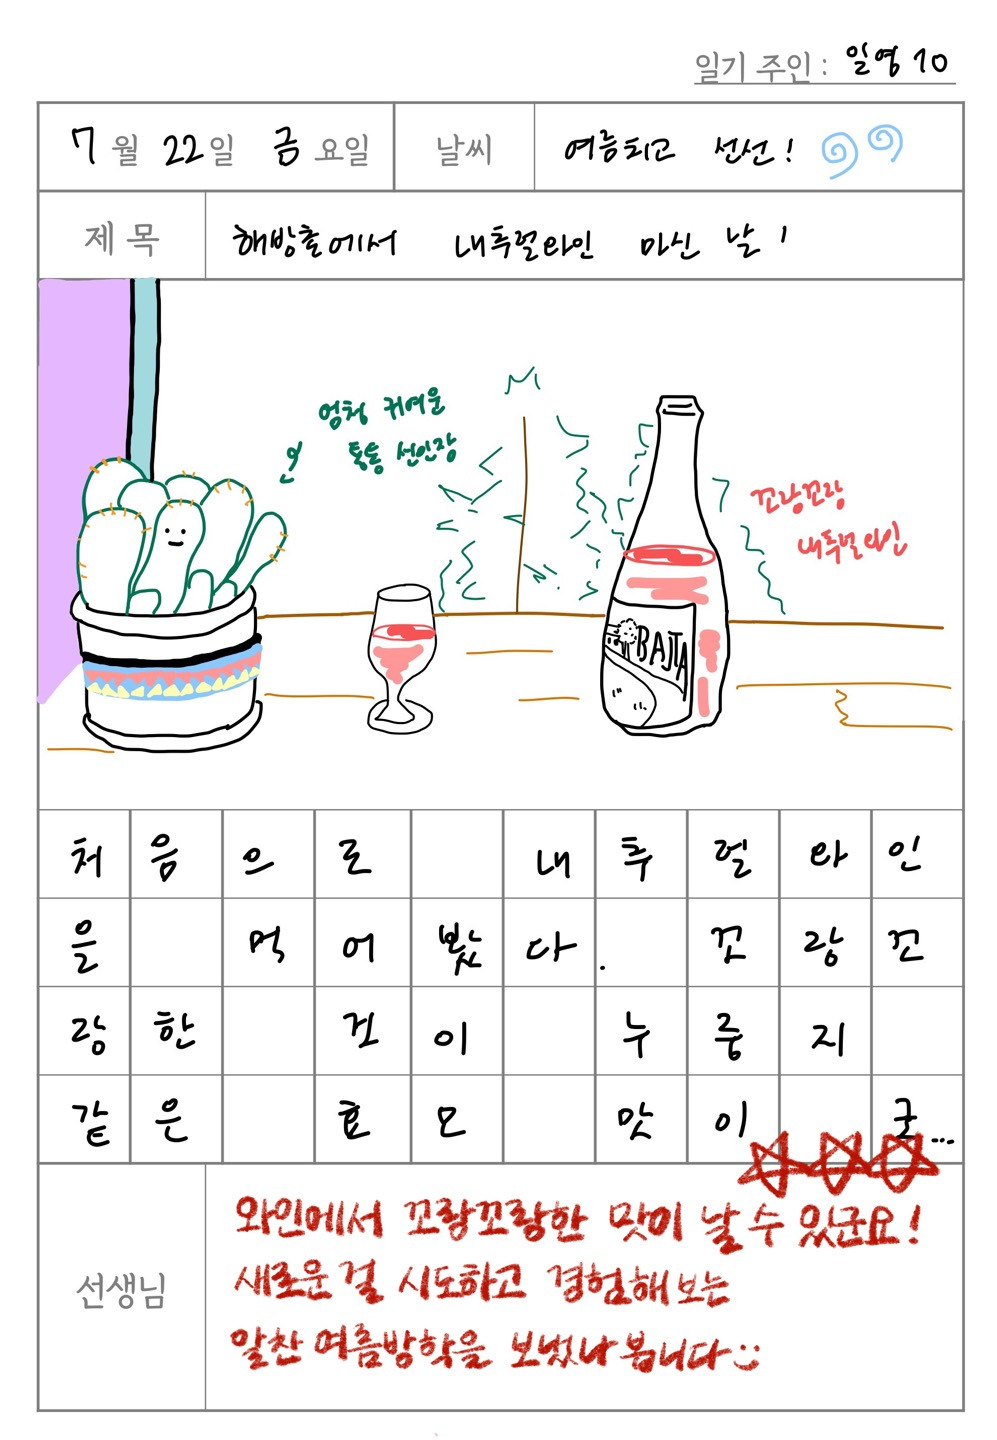 일기 주인 : 일영 10
7월 22일 금요일 날씨 여름치고 선선!
제목 해방촌에서 내추럴와인 마신 날!
엄청 귀여운
통통 선인장
꼬랑꼬랑
내추럴와인
BAJTA
처음으로 내추럴와인
을 먹어봤다. 꼬랑꼬
랑한 것이 누룽지
같은 효모 맛이 군...
선생님
와인에서 꼬랑꼬랑한 맛이 날 수 있군요!
새로운 걸 시도하고 경험해 보는
알찬 여름방학을 보냈나 봅니다